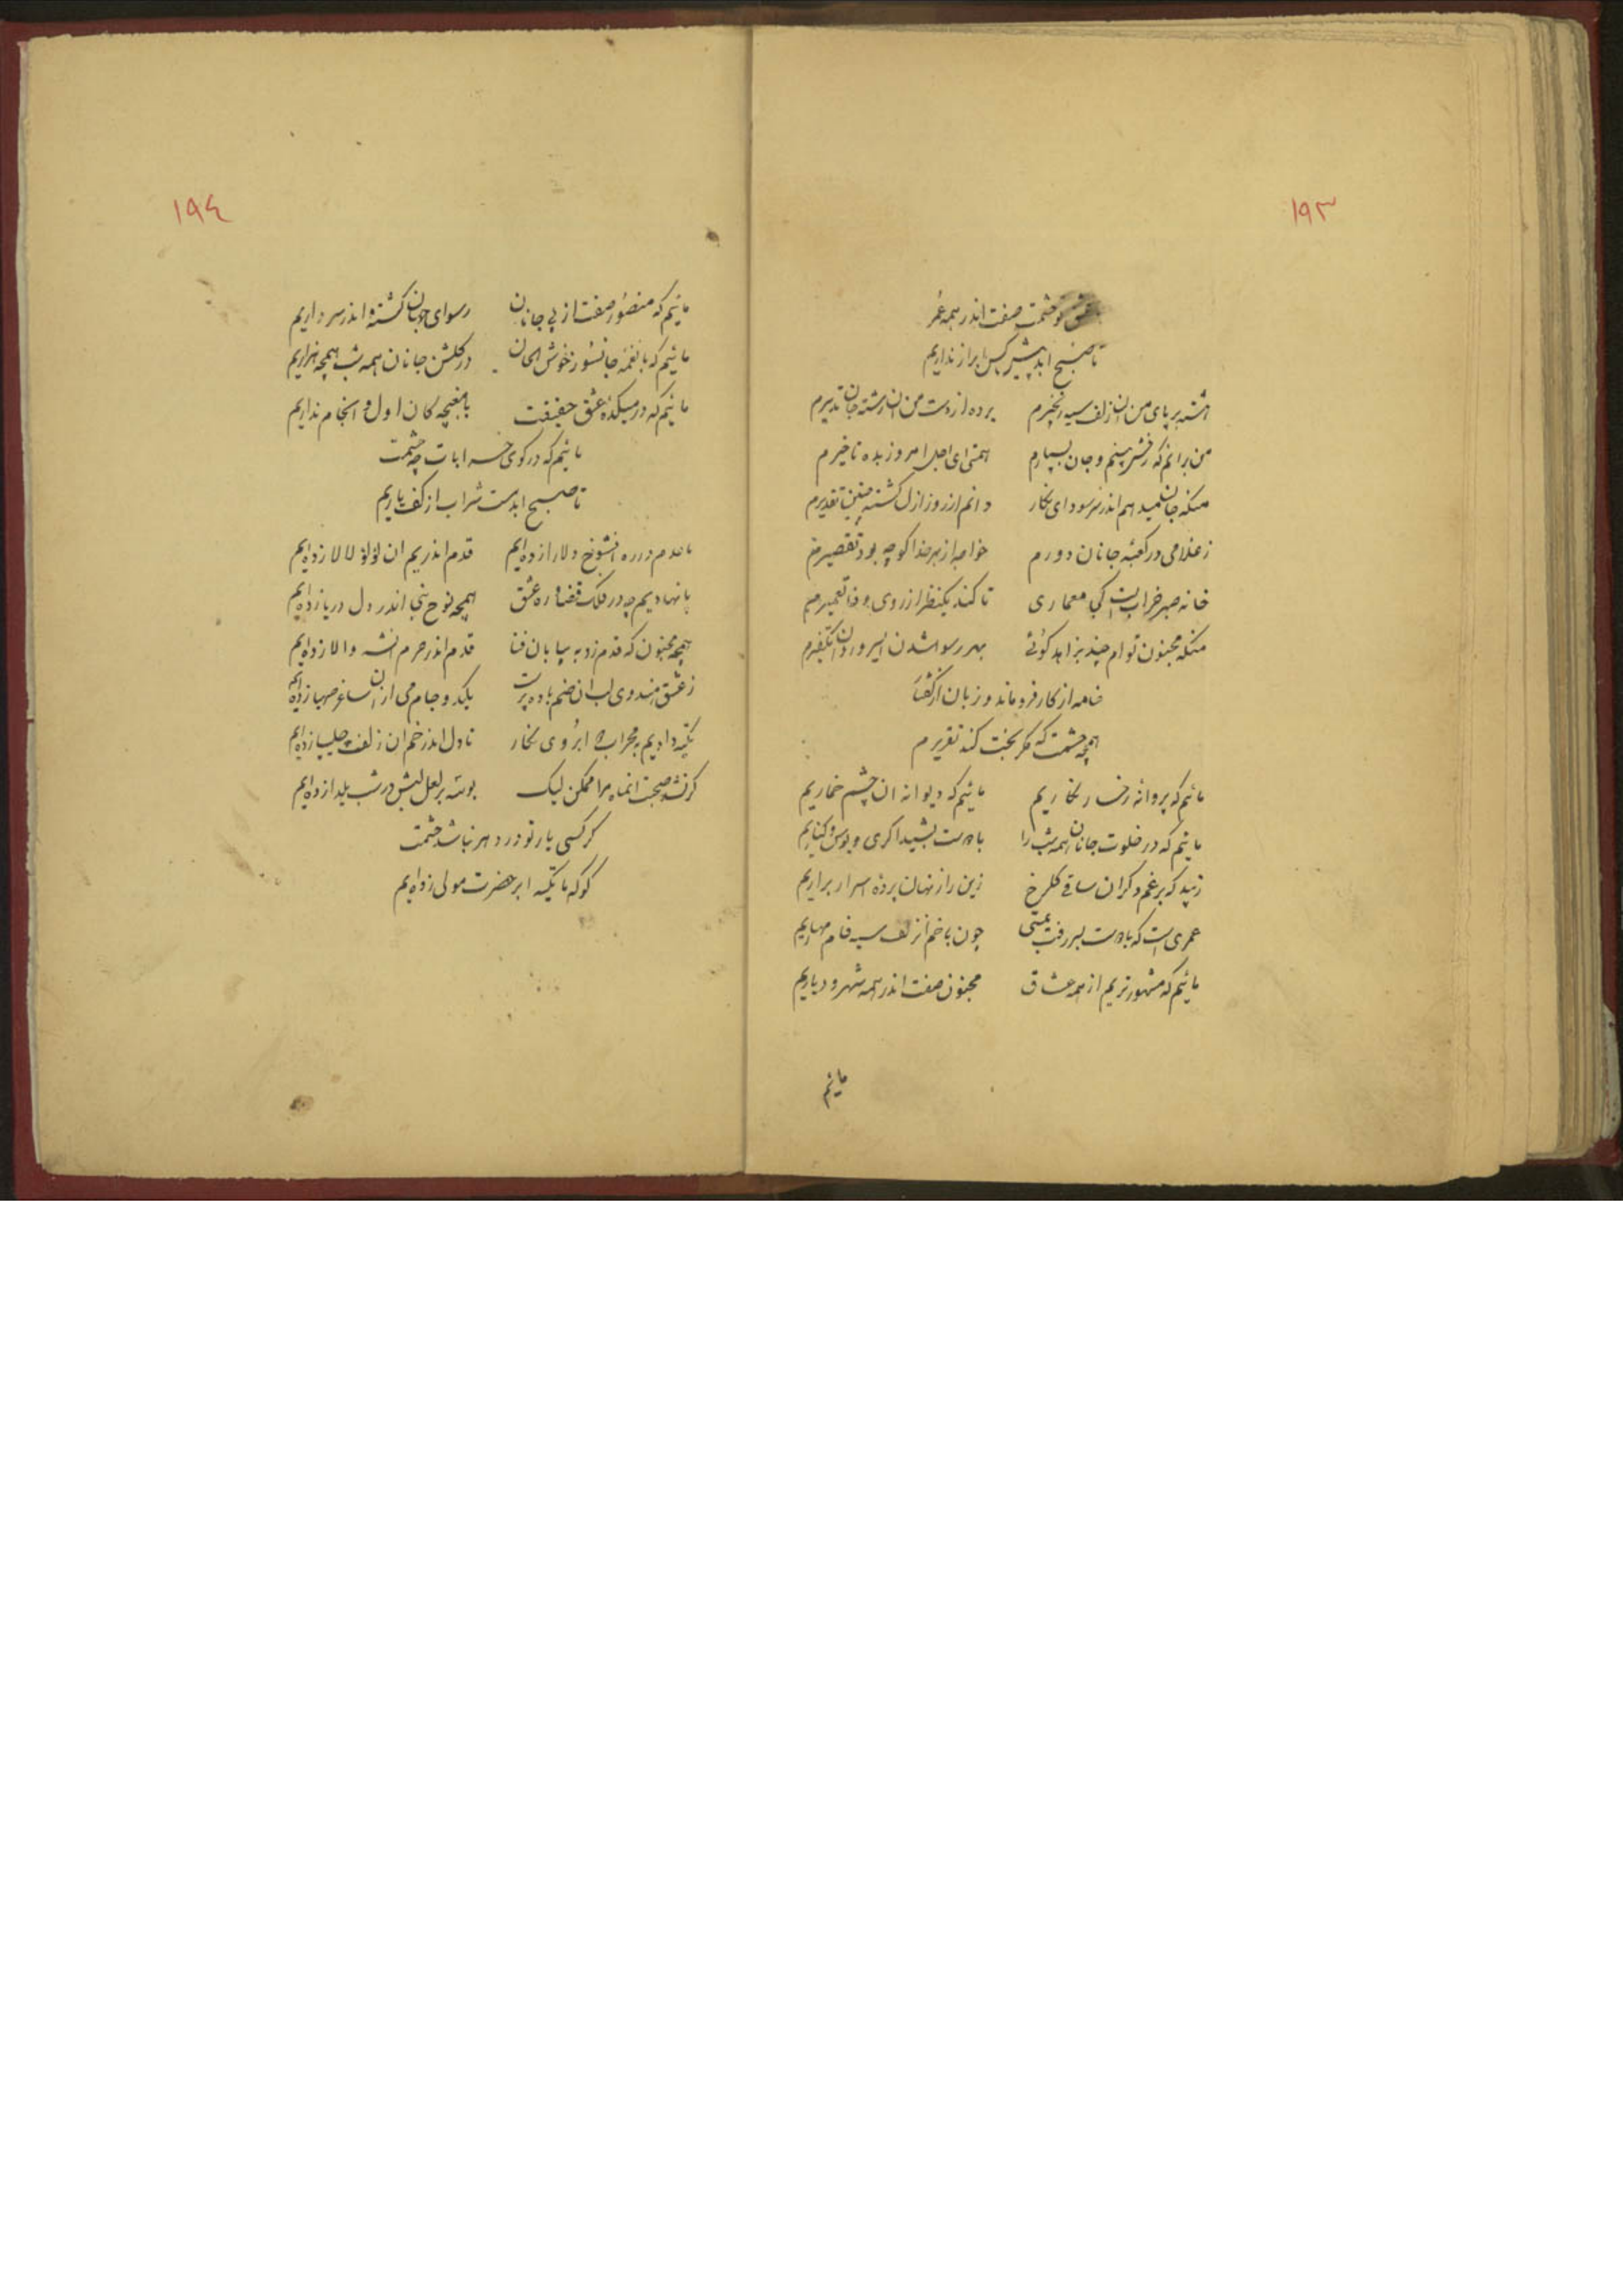 ١٩٣
عشق تو حشمت صفت اندر همه عمر
تا صبح ابد پیش کس ابراز نداریم
هشته بر پای من ان زلف سیه زنجیرم برده از دست من ان رشته جان تدبیرم
من برانم که رخش بینم و جان بسپارم همتی ای اجل امروز بده تاخیرم
منکه جان میدهم اندر سر سودای نگار دانم از روز ازل گشته چنین تقدیرم
ز غلامی در کعبه جانان دورم خواجه از بهر خدا کو چه بود تقصیرم
خانه صبر خرابست کجا معماری تا کند یکنظر از روی وفا تعمیرم
منکه مجنون توام چند بزاهد کوئی بهر رسوا شدن
خامه از کار فروماند و زبان از گفتار
همچه حشمت که مگر بخت کند تقریرم
مائیم که پروانه رخسار نگاریم مائیم که دیوانه ان چشم خماریم
مائیم که در خلوت جانان همه شب را با دوست بشیدا کری و بوس و کناریم
زیبد که برغم دکران ساقی کلرخ زین راز نهان پرده اسرار براریم
عمری است که با دوست بسر رفت بمستی چون با خم ان زلف سیه فام مهاریم
مائیم که مشهورتریم از همه عشاق مجنون صفت اندر همه شهر و دیاریم
مائیم
١٩٤
مائیم که منصور صفت از پی جانان رسوای جهان کشته و اندر سر داریم
مائیم که با نغمه جانسوز خوش الحان در کلشن جانان همه شب همچه هزاریم
مائیم که در میکده عشق حقیقت با مغبچه کان اول و انجام نداریم
مائیم که در کوی خرابات چه حشمت
تا صبح ابد مست شراب از کف یاریم
ما قدم در ره انشوخ دلارا زده ایم قدم اندر یم ان لؤلؤ لالا زده ایم
پا نهادیم چه در فلک قضا ره عشق همچه نوح نبی اندر دل دریا زده ایم
همچه مجنون که قدم زد به بیابان فنا قدم اندر حرم انشه والا زده ایم
ز عشق هندوی لب ان صنم باده پرست یکدو جام می از ان ساغر صهبا زده ایم
تکیه دادیم بمحراب دو ابروی نگار تا دل اندر خم ان زلف چلیپا زده ایم
کر نشد صحبت انماه مرا ممکن لیک بوسه بر لعل لبش در شب یلدا زده ایم
کر کسی یار تو در دهر نباشد حشمت
کو که ما تکیه ابر حضرت مولی زده ایم